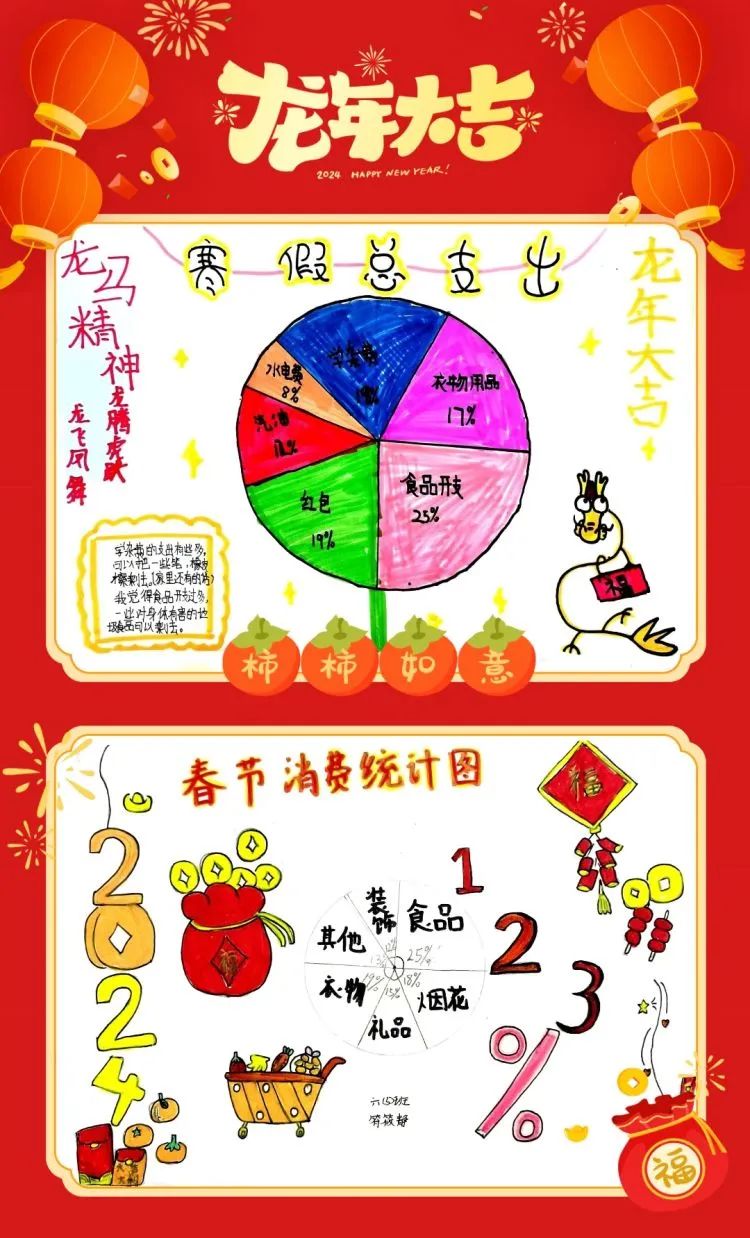 龙年大吉
2024 HAPPY NEW YEAR!
寒假总支出
龙马精神
龙腾虎跃
龙飞凤舞
龙年大吉
学杂费
18%
衣物用品
17%
水电费
8%
汽油
红包
19%
食品开支
25%
福
学杂费的支出有些多,
可以把一些笔,橡皮
我觉得食品开支过多,
一些对身体有害的垃
圾食品可以剩去。
柿柿如意
春节消费统计图
福
2024
装饰
食品
25%
其他
衣物
19%
礼品
15%
烟花
18%
1
2
3
%
六(5)班
福